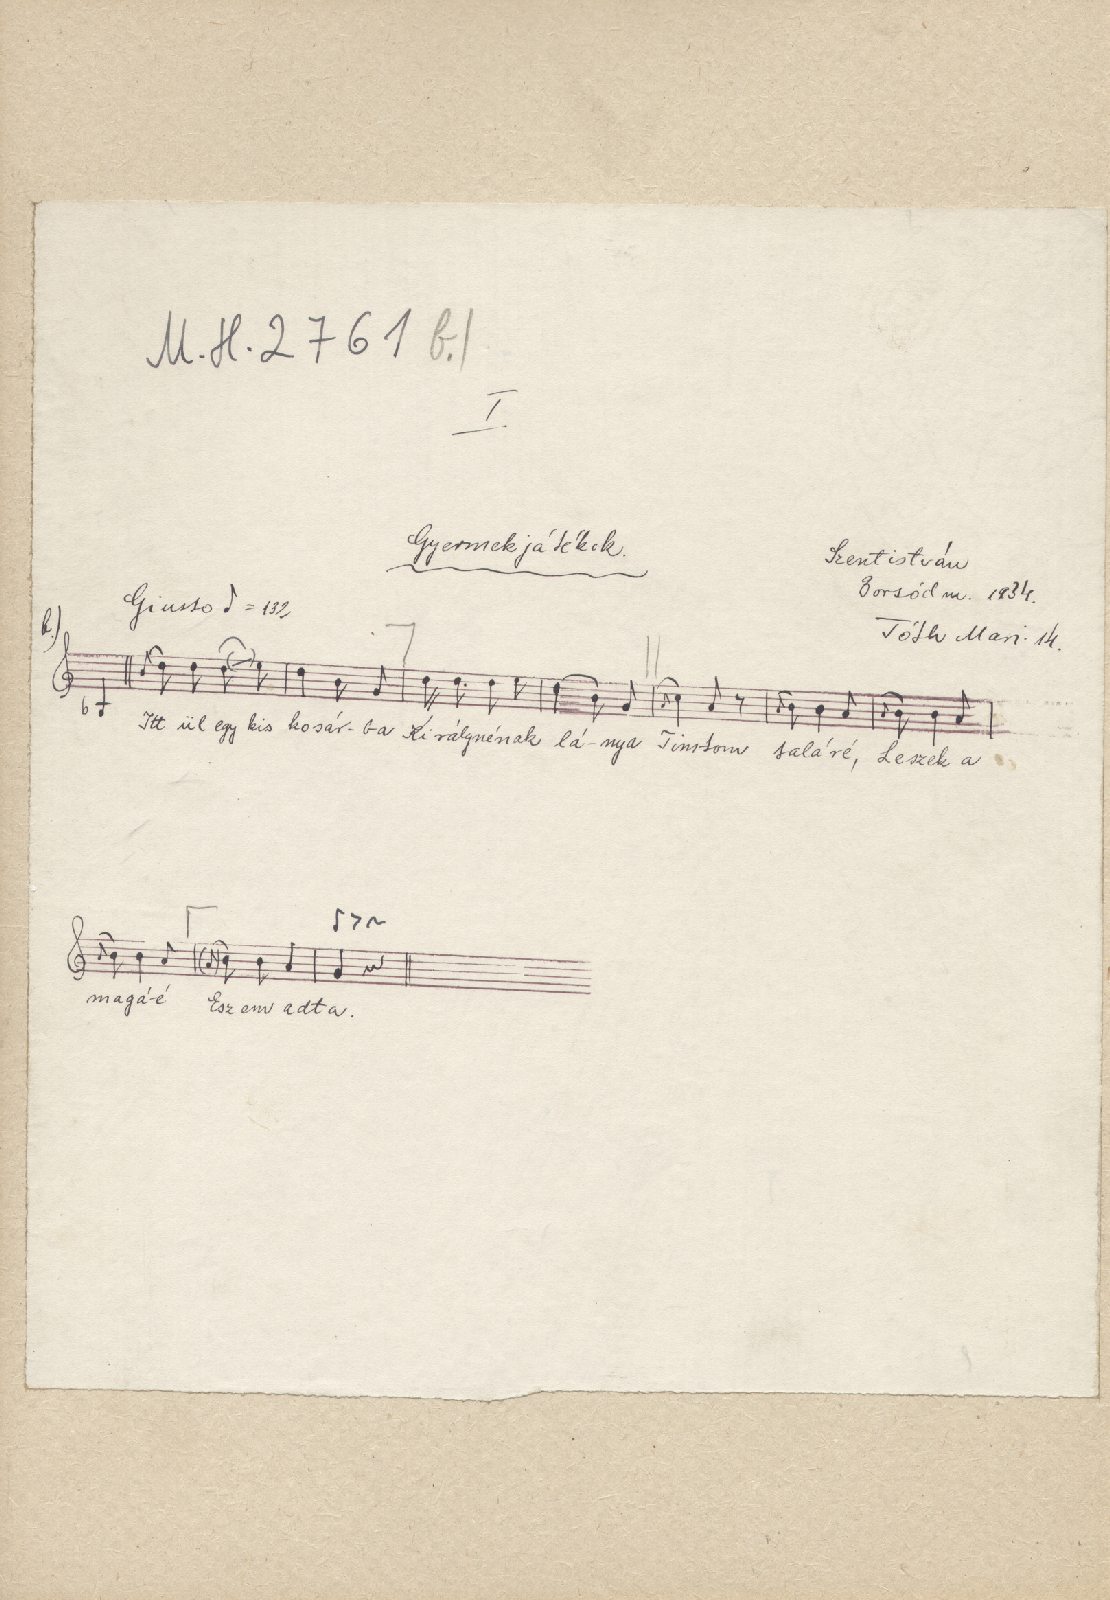 M.H. 2761 b.)
I.
Gyermekjátékok.
Szentistván
Borsód m. 1934.
Tóth Mari. 14.
Giusto ♪ = 132
b.)
Itt ül egy kis kosár-ba Királynénak lá-nya Tinstom taláré, Leszek a
magá-é Eszem adta.